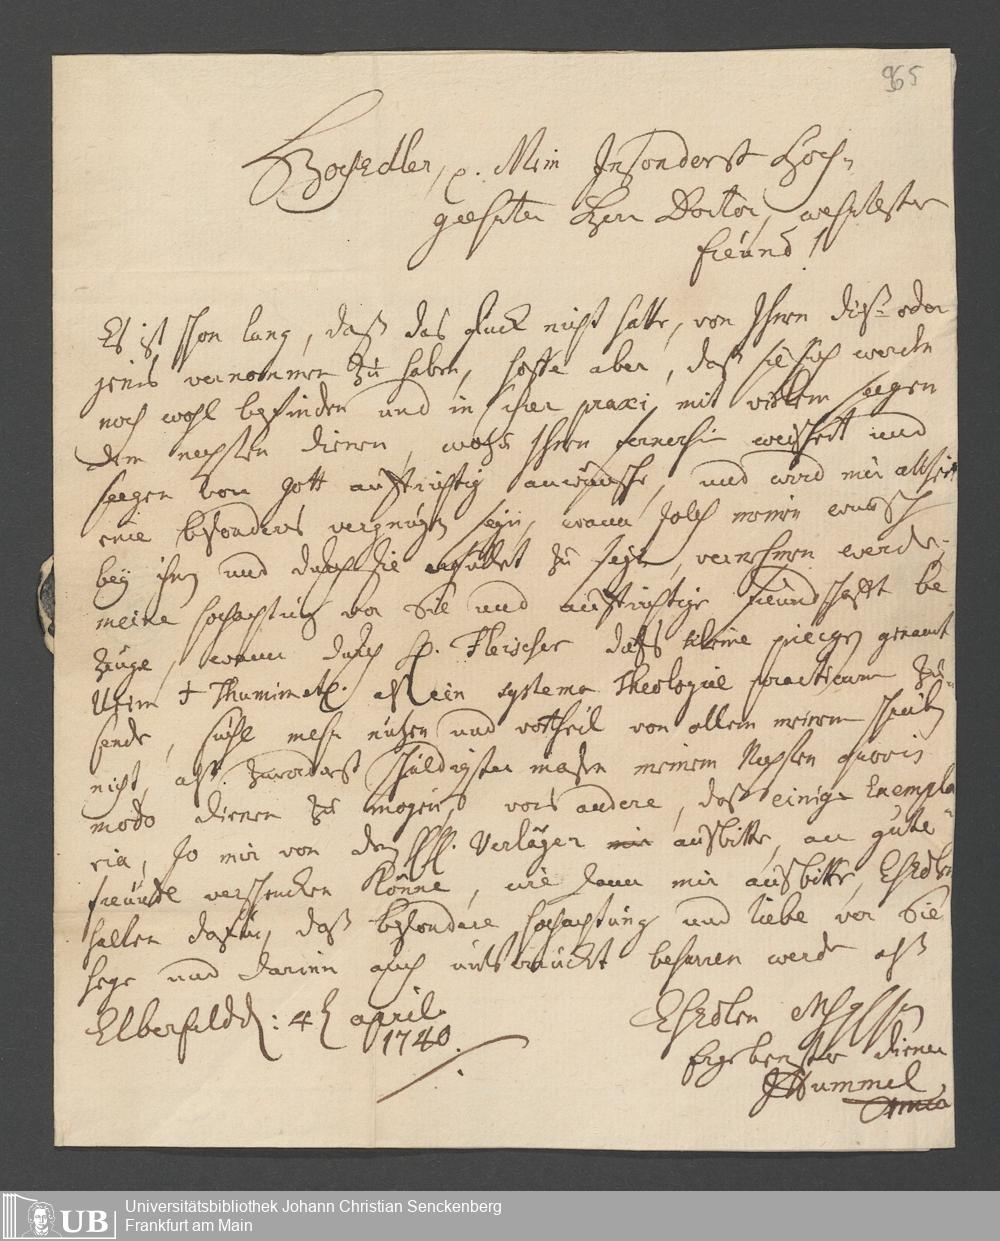 965
HochEdler, p. Mein Insonderst Hoch-
geehrter Herr Doctor, wehrtester
freünd!
Es ist schon lang, daß das glück nicht hatte, von Ihnen diß oder
jenes vernommen zu haben, hoffe aber, daß sie sich werden
noch wohl befinden und in ihrer praxi mit vielem seegen
dem nechsten dienen, wozu Ihnen fernerhin weißheit und
seegen von Gott aufrichtig anwünsche, und wird mir allzeit
eine besonderes vergnügen seyn, wann solch meinen wunsch
bey ihnen und durch sie erfüllet zu seyn, vernehmen werde;
meine hochachtung vor Sie und aufrichtige freundschafft be
zeuge, wann durch H. Fleischer dißs kleine piecgen genannt
Urim & Thumim etc. als ein systema Theologiae practicum zu-
sende, suche mehr nutzen und vortheil von allem meinem schreiben
nicht, als zuvorderst schuldigster maßen meinem Nechsten quovis
modo dienen zu mögen, vors andere, daß einige Exempla-
ria, so mir von den HH. Verläger mir ausbitte, an gute
freunde verschencken könne, wie dann mir ausbitte, EhEdlen
halten dafür, daß besondere hochachtung und liebe vor Sie
hege und darinn auch unverruckt beharren werde als
Elberfeld d: 4t april.
1740.
EhEdlen
Ergebenster diener
Hummel